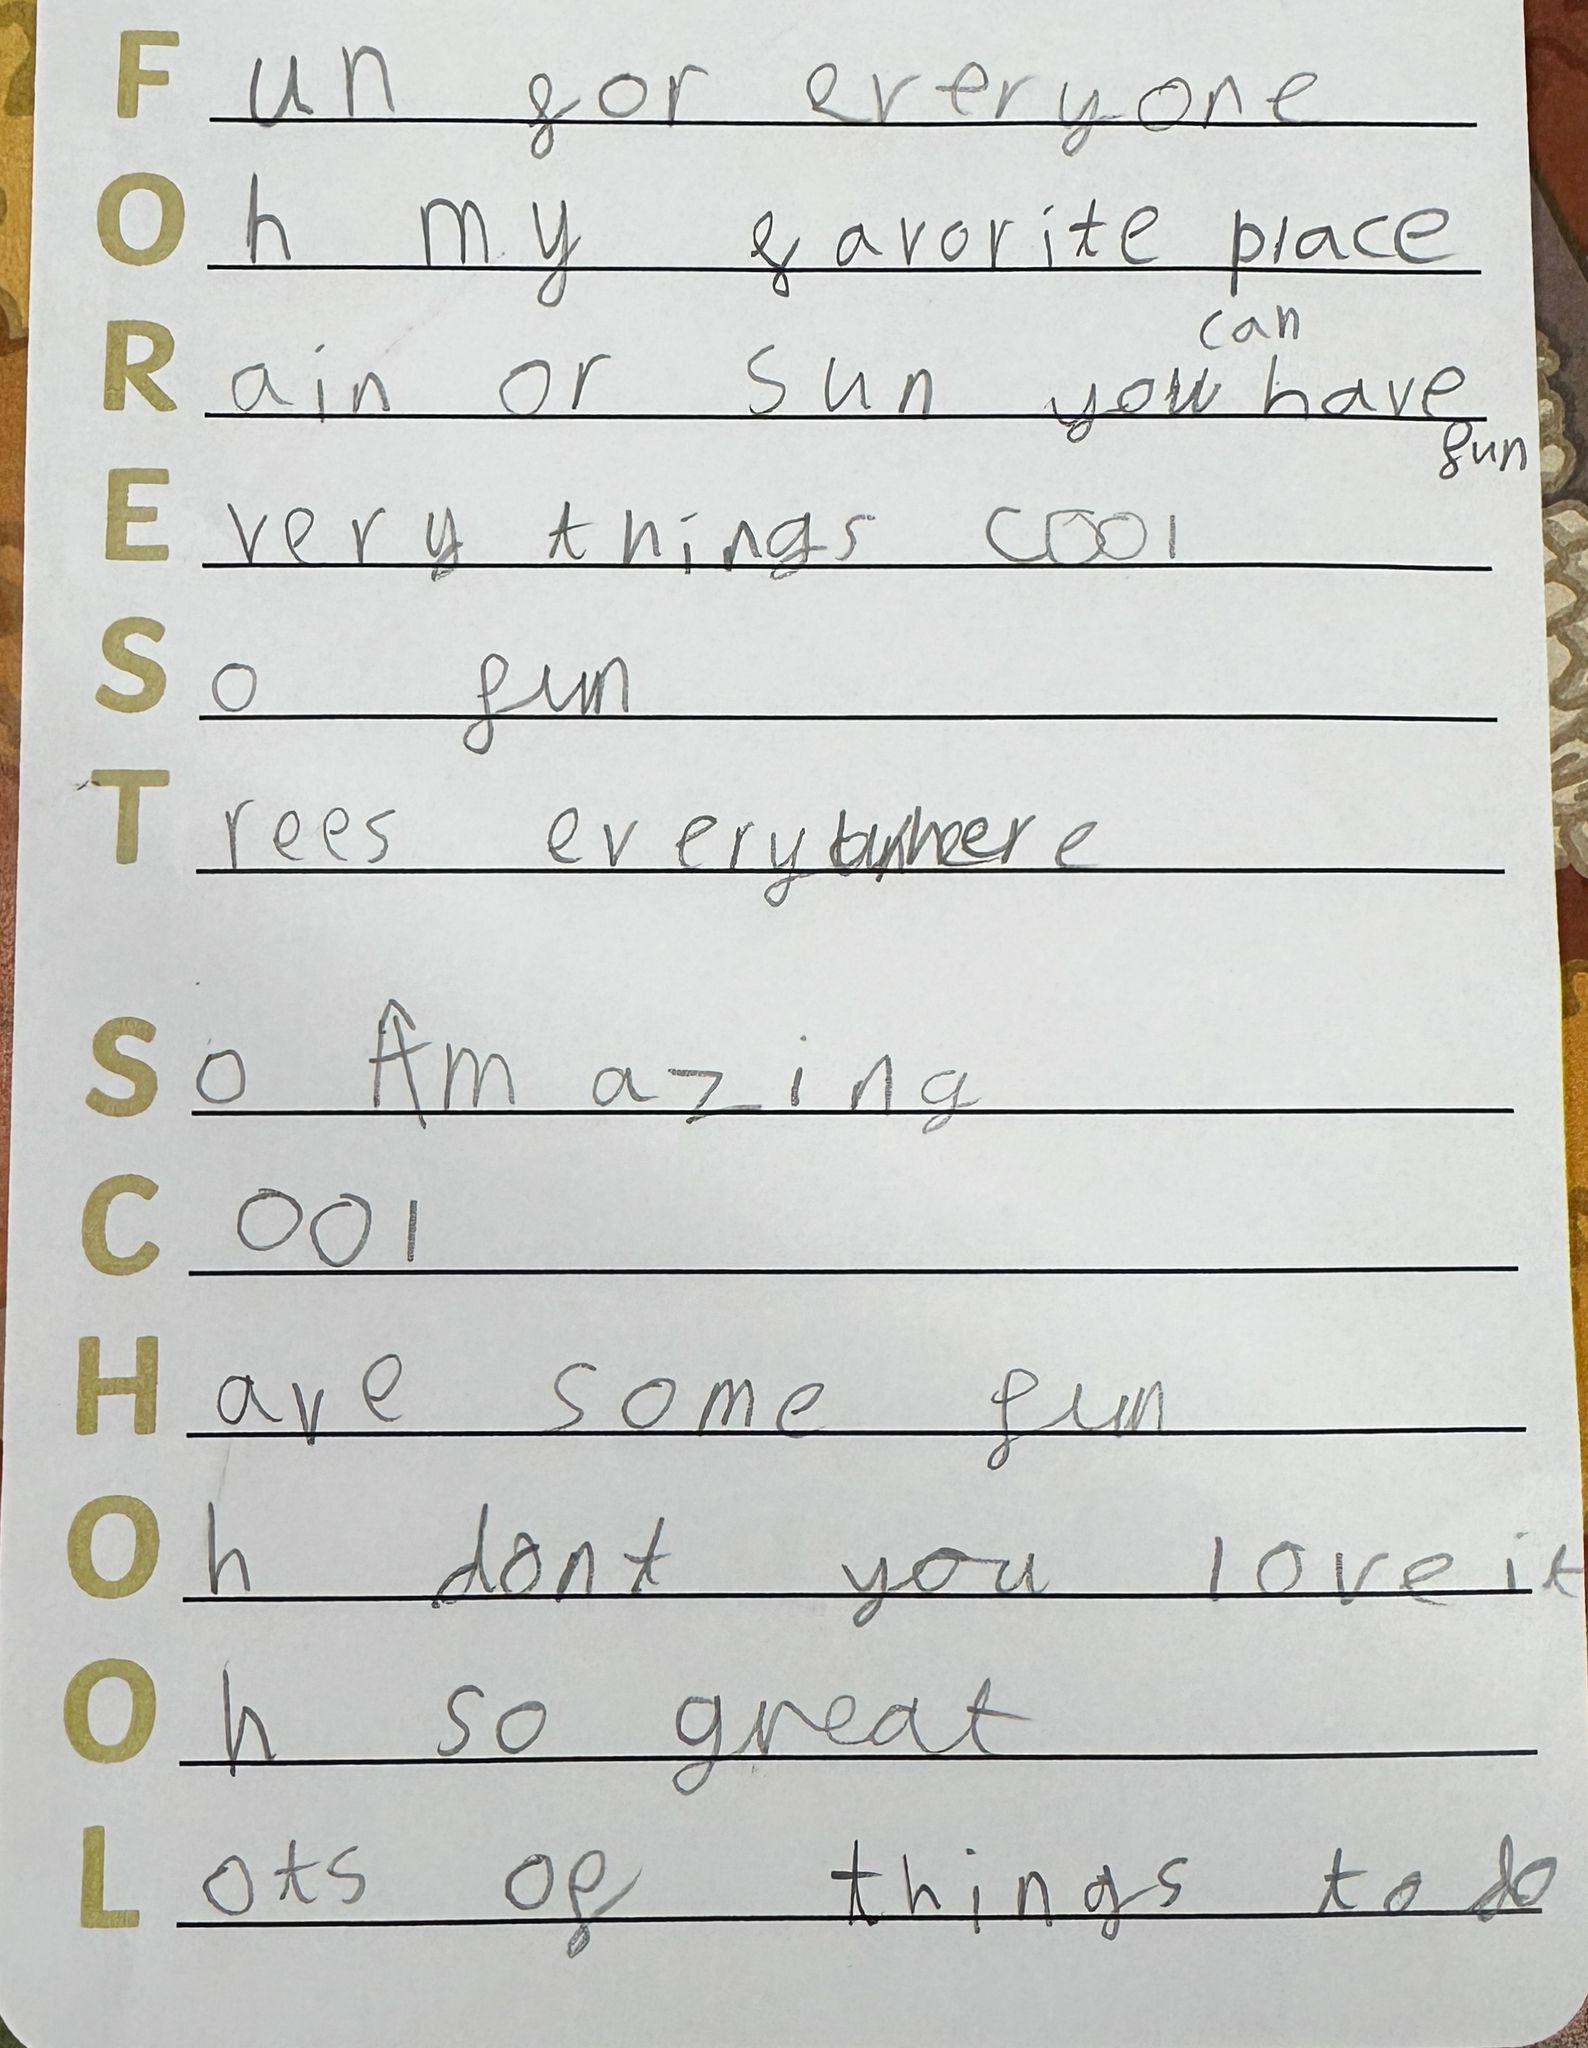 Fun for everyone
Oh my favorite place
Rain or sun you can have fun
Every things cool
So fun
Trees everywhere
So Amazing
Cool
Have some fun
Oh dont you love it
Oh so great
Lots of things to do